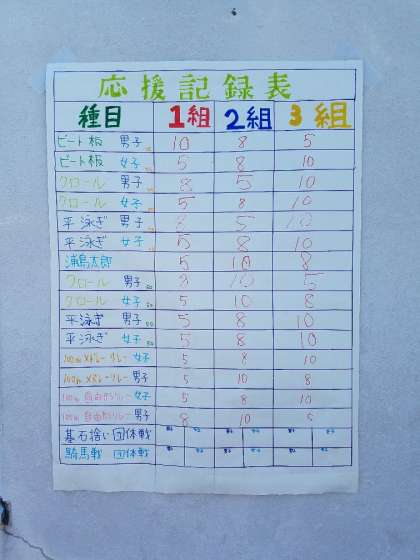 応援記録表
種目 1組 2組 3組
ビート板 男子 10 8 5
ビート板 女子 5 8 10
クロール 男子 8 5 10
クロール 女子 5 8 10
平泳ぎ 男子 8 5 10
平泳ぎ 女子 5 8 10
浦島太郎 5 10 8
クロール 男子 50 8 10 5
クロール 女子 50 5 10 8
平泳ぎ 男子 50 5 8 10
平泳ぎ 女子 50 5 8 10
100m メドレーリレー 女子 5 8 10
100m メドレーリレー 男子 5 10 8
100m 自由形リレー 女子 5 8 10
100m 自由形リレー 男子 8 10 5
碁石拾い 団体戦
騎馬戦 団体戦